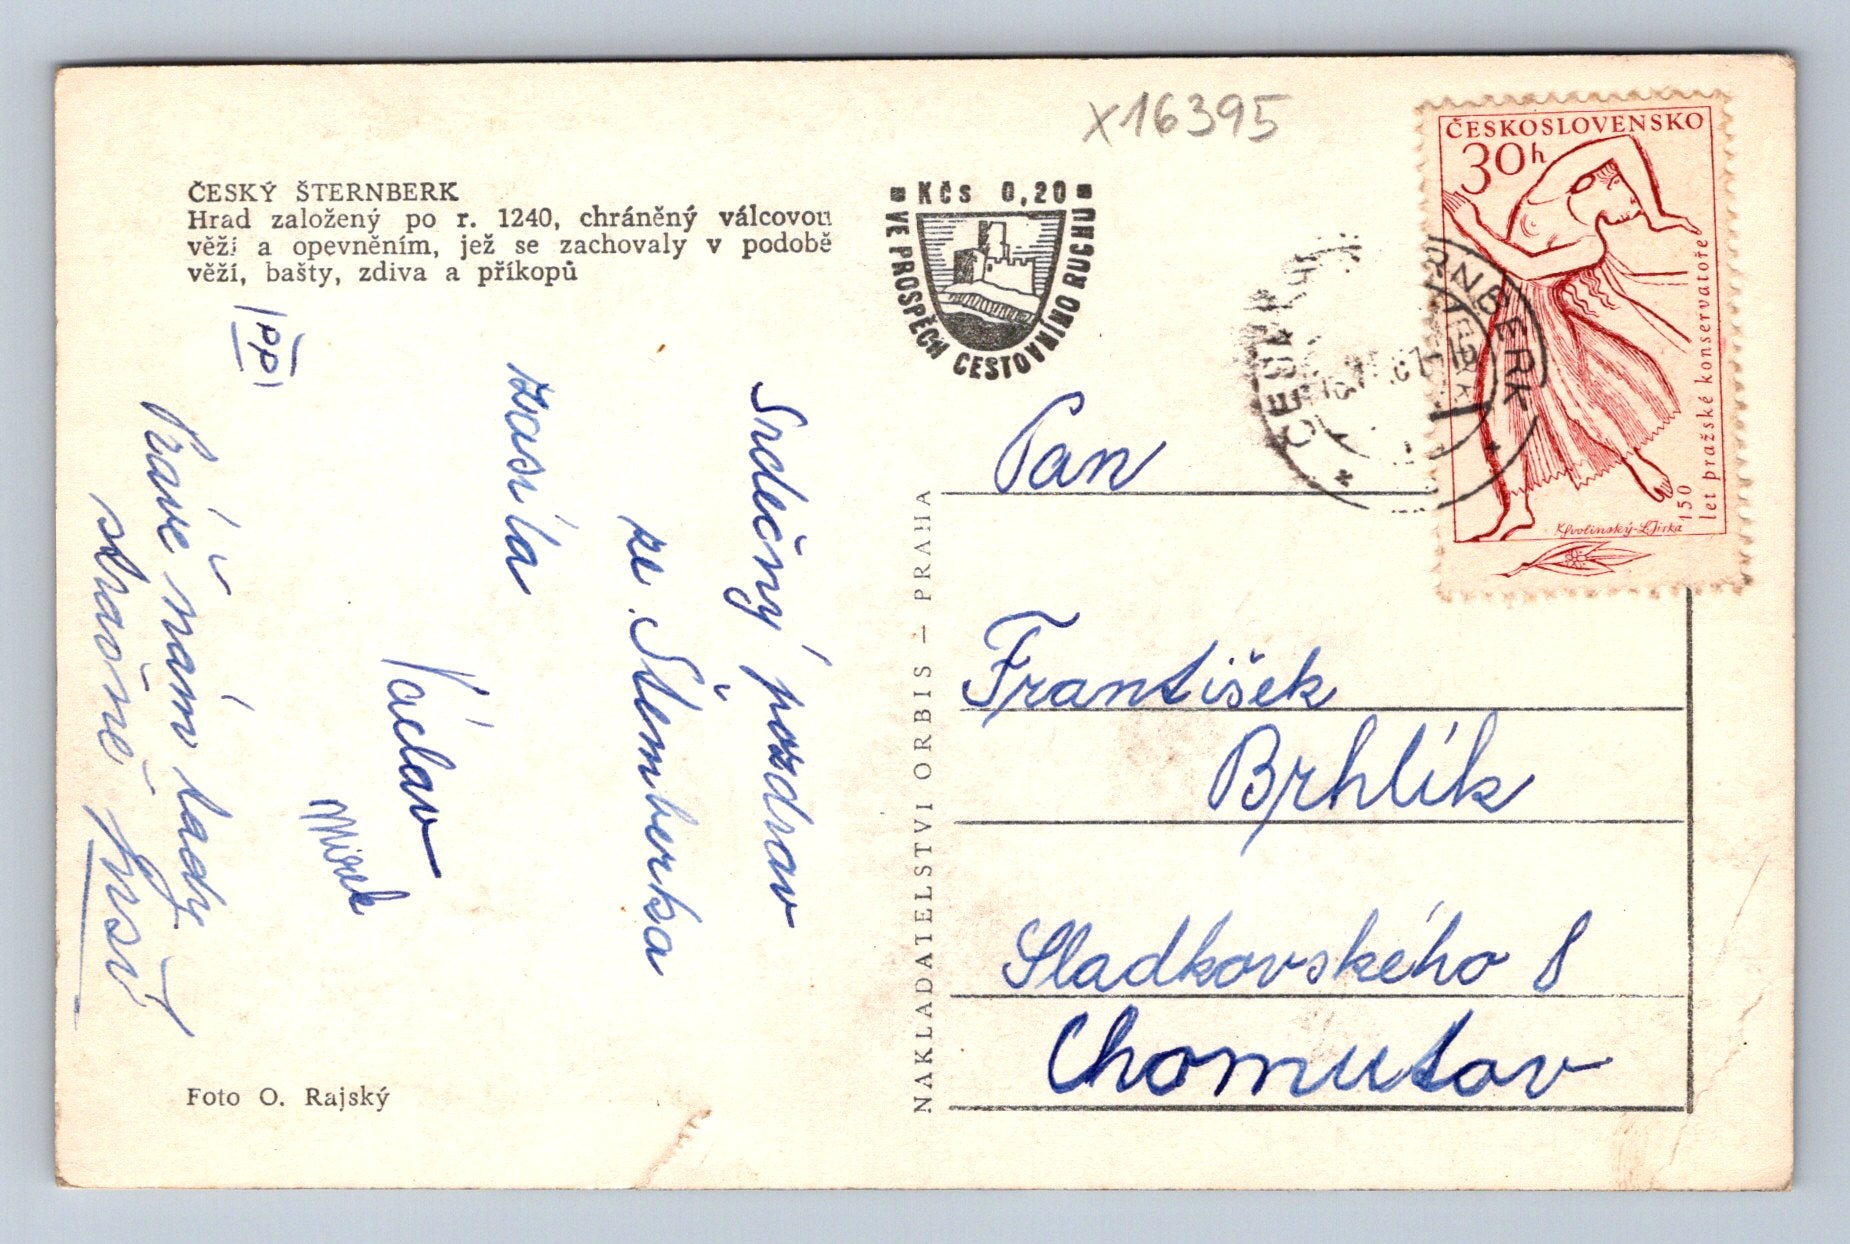 x16395
ČESKÝ ŠTERNBERK
Hrad založený po r. 1240, chráněný válcovou
věží a opevněním, jež se zachovaly v podobě
věží, bašty, zdiva a příkopů
KČs 0,20
VE PROSPĚCH CESTOVNÍHO RUCHU
ČESKOSLOVENSKO
30h
150
let pražské konservatoře
K.Svolinský-L.Jirka
Srdečný pozdrav
ze Štemberka
zasílá
Václav
Mirek
PP
Právě nám tady
strašně prší
NAKLADATELSTVÍ ORBIS — PRAHA
Pan
František
Brhlík
Sladkovského 8
Chomutov
Foto O. Rajský